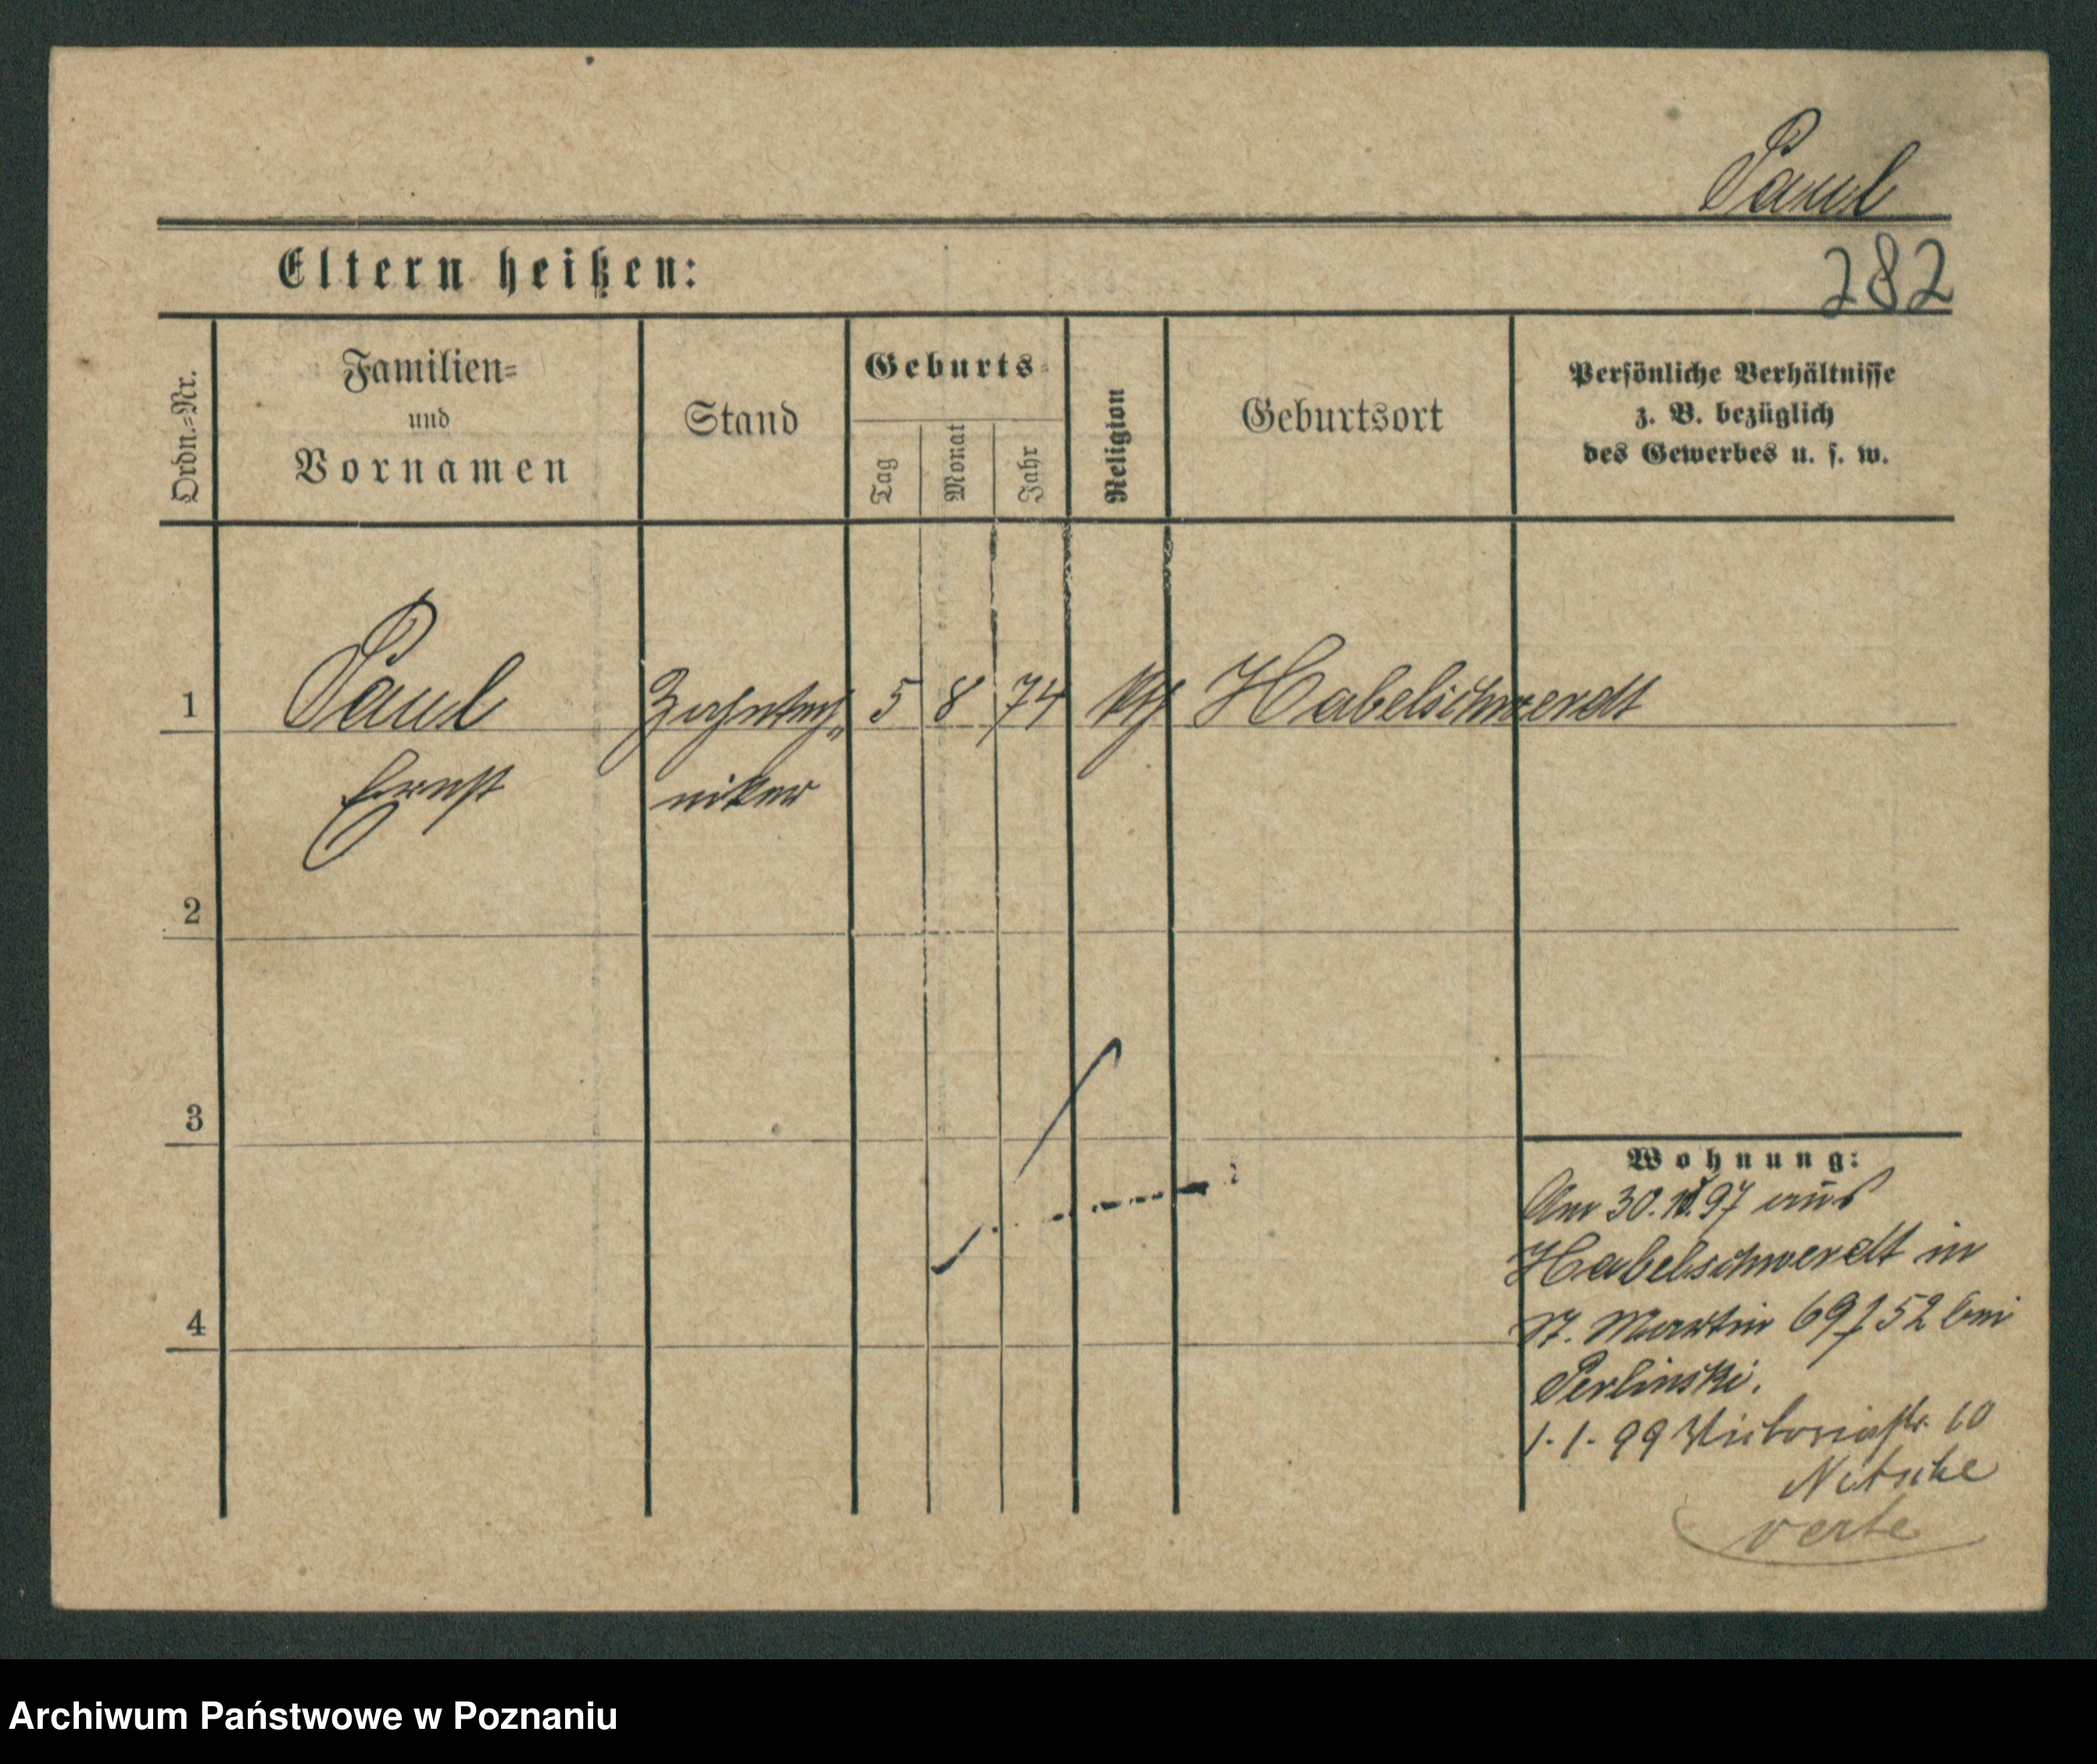 Paul
Eltern heißen:
282
Ordn.=Nr.
Familien=
und
Vornamen
Stand
Geburts=
Tag
Monat
Jahr
Religion
Geburtsort
Persönliche Verhältnisse
z. B. bezüglich
des Gewerbes u. s. w.
1 Paul Zahntech„ 5 8 74 kth Habelschwerdt
Ernst niker
2
3
4
Wohnung:
Am 30. 97 aus
Habelschwerdt in
St. Martin 69/52 bei
Perlinski.
1.1.99 Victoriastr. 10
Nitsche
verte
Archiwum Państwowe w Poznaniu